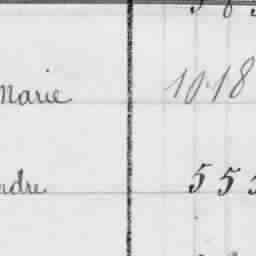 Marie 1018
ndre 55